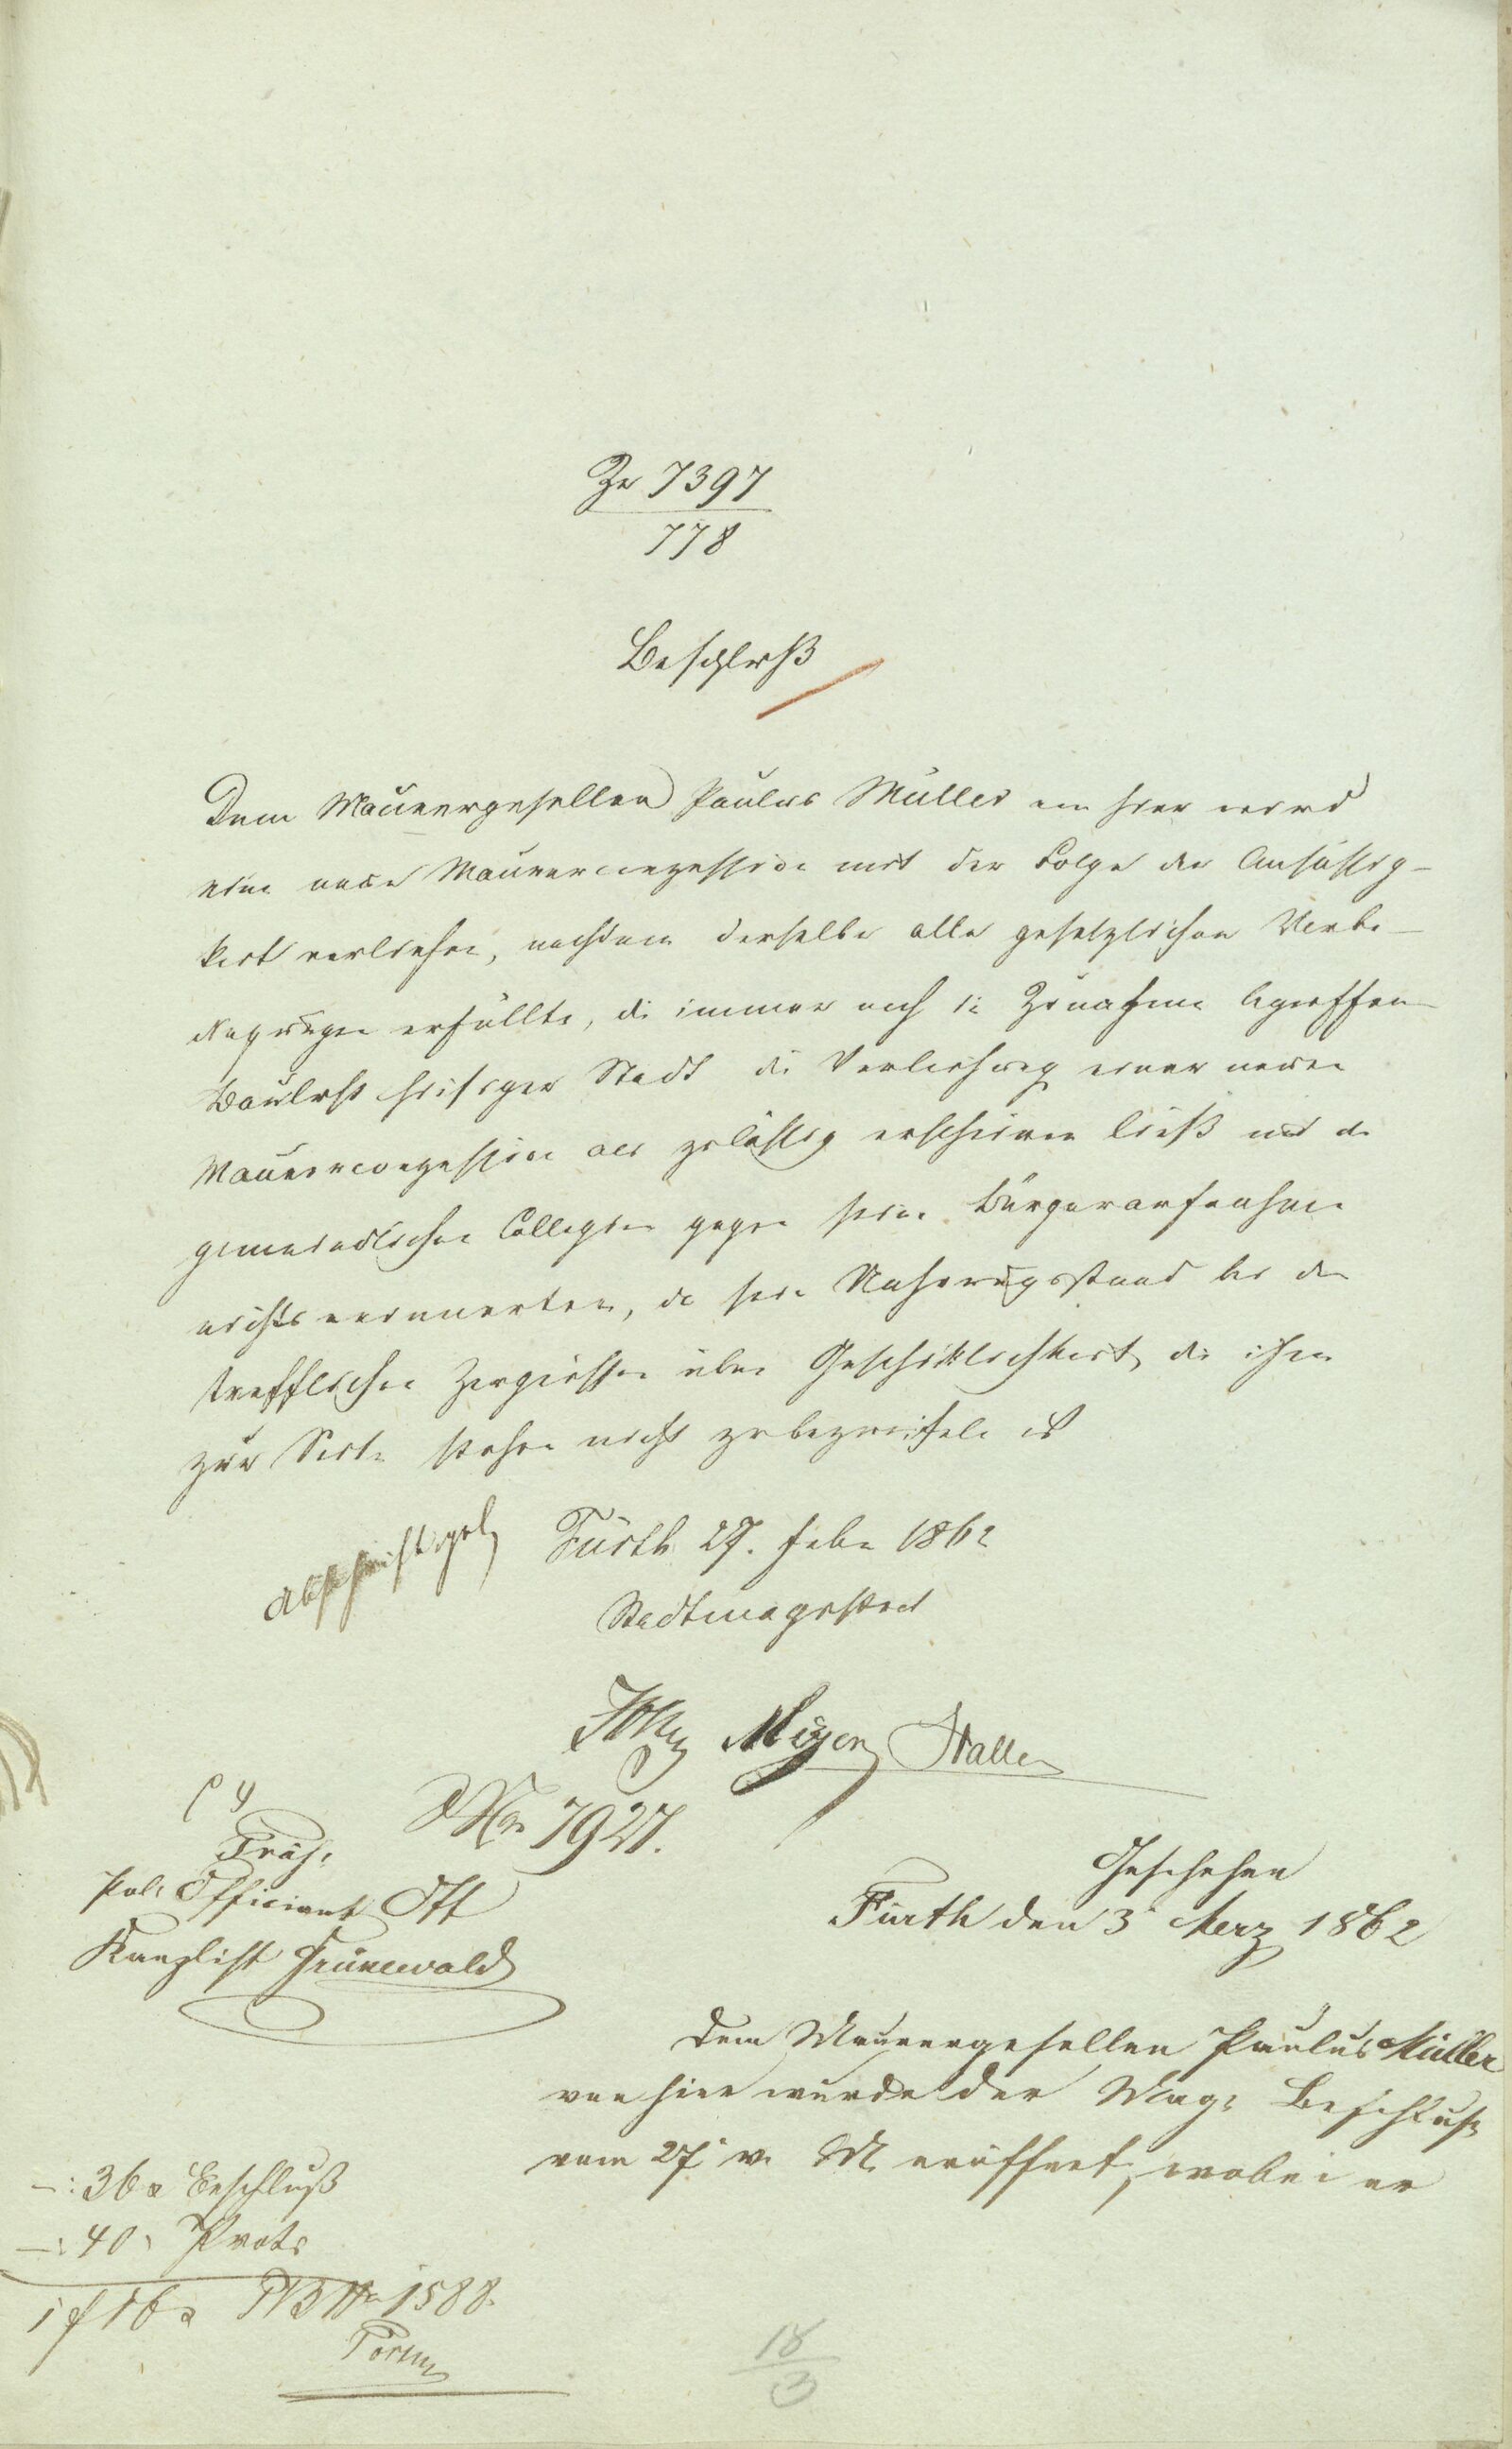 Zu 7397
778
Beschluß
Dem Maurergesellen Paulus Müller von hier wird
eine neue Maurerconzession mit der Folge der Ansässig-
keit verliehen, nachdem derselbe alle gesetzlichen Vorbe-
dingungen erfüllte, die immer noch in Zunahme begriffene
Baulust hiesiger Stadt die Verleihung einer neuen
Maurerconzession als zulässig erscheinen ließ und die
gemeindlichen Collegien gegen seine Bürgeraufnahme
nichts erinnerten, da sein Nahrungsstand bei den
trefflichen Zeugnissen über Geschicklichkeit, die ihm
zur Seite stehen nicht zu bezweifeln ist
Fürth 27. Febr 1862
Stadtmagistrat
Meyer Haller
Präs.
Pol. Officiant Ott
Kanzlist Grünewald
Nr 7927.
Geschehen
Fürth den 3 Merz 1862
Dem Maurergesellen Paulus Müller
von hier wurde der Mag. Beschluß
vom 27 v. M. eröffnet, wobei er
–: 36 x Beschluß
–: 40 " Prot.
1 f 16 x Nr 1588.
18
3